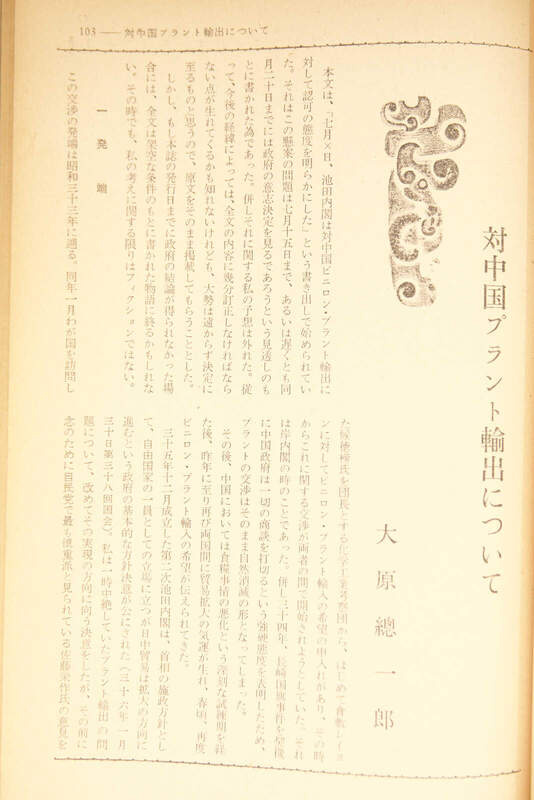 103 ― 対中国プラント輸出について
対中国プラント輸出について
大原總一郎
本文は、「七月×日、池田内閣は対中国ビニロン・プラント輸出に
対して認可の態度を明らかにした」という書き出しで始められてい
た。それはこの懸案の問題は七月十五日まで、あるいは遅くとも同
月二十日までには政府の意志決定を見るであろうという見透しのも
とに書かれた為であった。併しそれに関する私の予想は外れた。従
って、今後の経緯によっては、全文の内容に幾分訂正しなければなら
ない点が生れてくるかも知れないけれども、大勢は遠からず決定に
至るものと思うので、原文をそのまま掲載してもらうこととした。
しかし、もし本誌の発行日までに政府の結論が得られなかった場
合には、全文は架空な条件のもとに書かれた物語に終るかもしれな
い。その時でも、私の考えに関する限りはフィクションではない。
一 発端
この交渉の発端は昭和三十三年に遡る。同年一月わが国を訪問し
た侯徳榜氏を団長とする化学工業考察団から、はじめて倉敷レイヨ
ンに対してビニロン・プラント輸入の希望の申入れがあり、その時
からこれに関する交渉が両者の間で開始されようとしていた。それ
は岸内閣の時のことであった。併し三十四年、長崎国旗事件を契機
に中国政府は一切の商談を打切るという強硬態度を表明したため、
プラントの交渉はそのまま自然消滅の形となってしまった。
その後、中国においては食糧事情の悪化という深刻な試練期を経
た後、昨年に至り再び両国間に貿易拡大の気運が生れ、春頃、再度
ビニロン・プラント輸入の希望が伝えられてきた。
三十五年十二月成立した第二次池田内閣は、首相の施政方針とし
て、自由国家の一員としての立場に立つが日中貿易は拡大の方向に
進むという政府の基本的な方針決意が公にされた（三十六年一月
三十日第三十八回国会）。私は一時中絶していたプラント輸出の問
題について、改めてその実現の方向に向う決意をしたが、その前に
念のために自民党で最も慎重派と見られている佐藤栄作氏の意見を